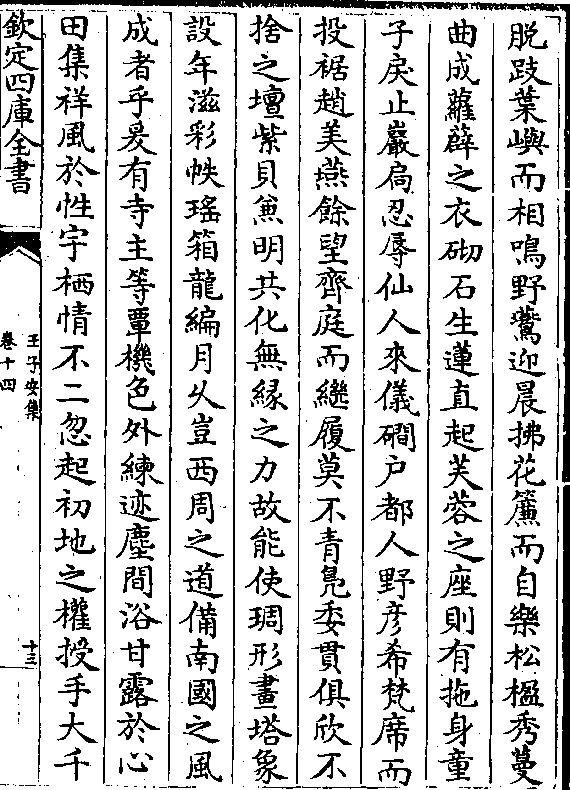 脱跂葉嶼而相鳴野鶯迎晨拂花簾而自樂松楹秀蔓
曲成蘿薜之衣砌石生蓮直起芙蓉之座則有拖身童
子戾止巖扃忍辱仙人來儀磵户都人野彦希梵席而
投裾趙美燕餘望齊庭而繼履莫不青鳬委貫俱欣不
捨之壇紫貝兼明共化無緣之力故能使琱形畫塔象
設年滋彩帙瑤箱龍編月夂豈西周之道備南國之風
成者乎爰有寺主等覃機色外練迹塵間浴甘露於心
田集祥風於性宇栖情不二忽起初地之權授手大千
欽定四庫全書
王子安集
卷十四
十三